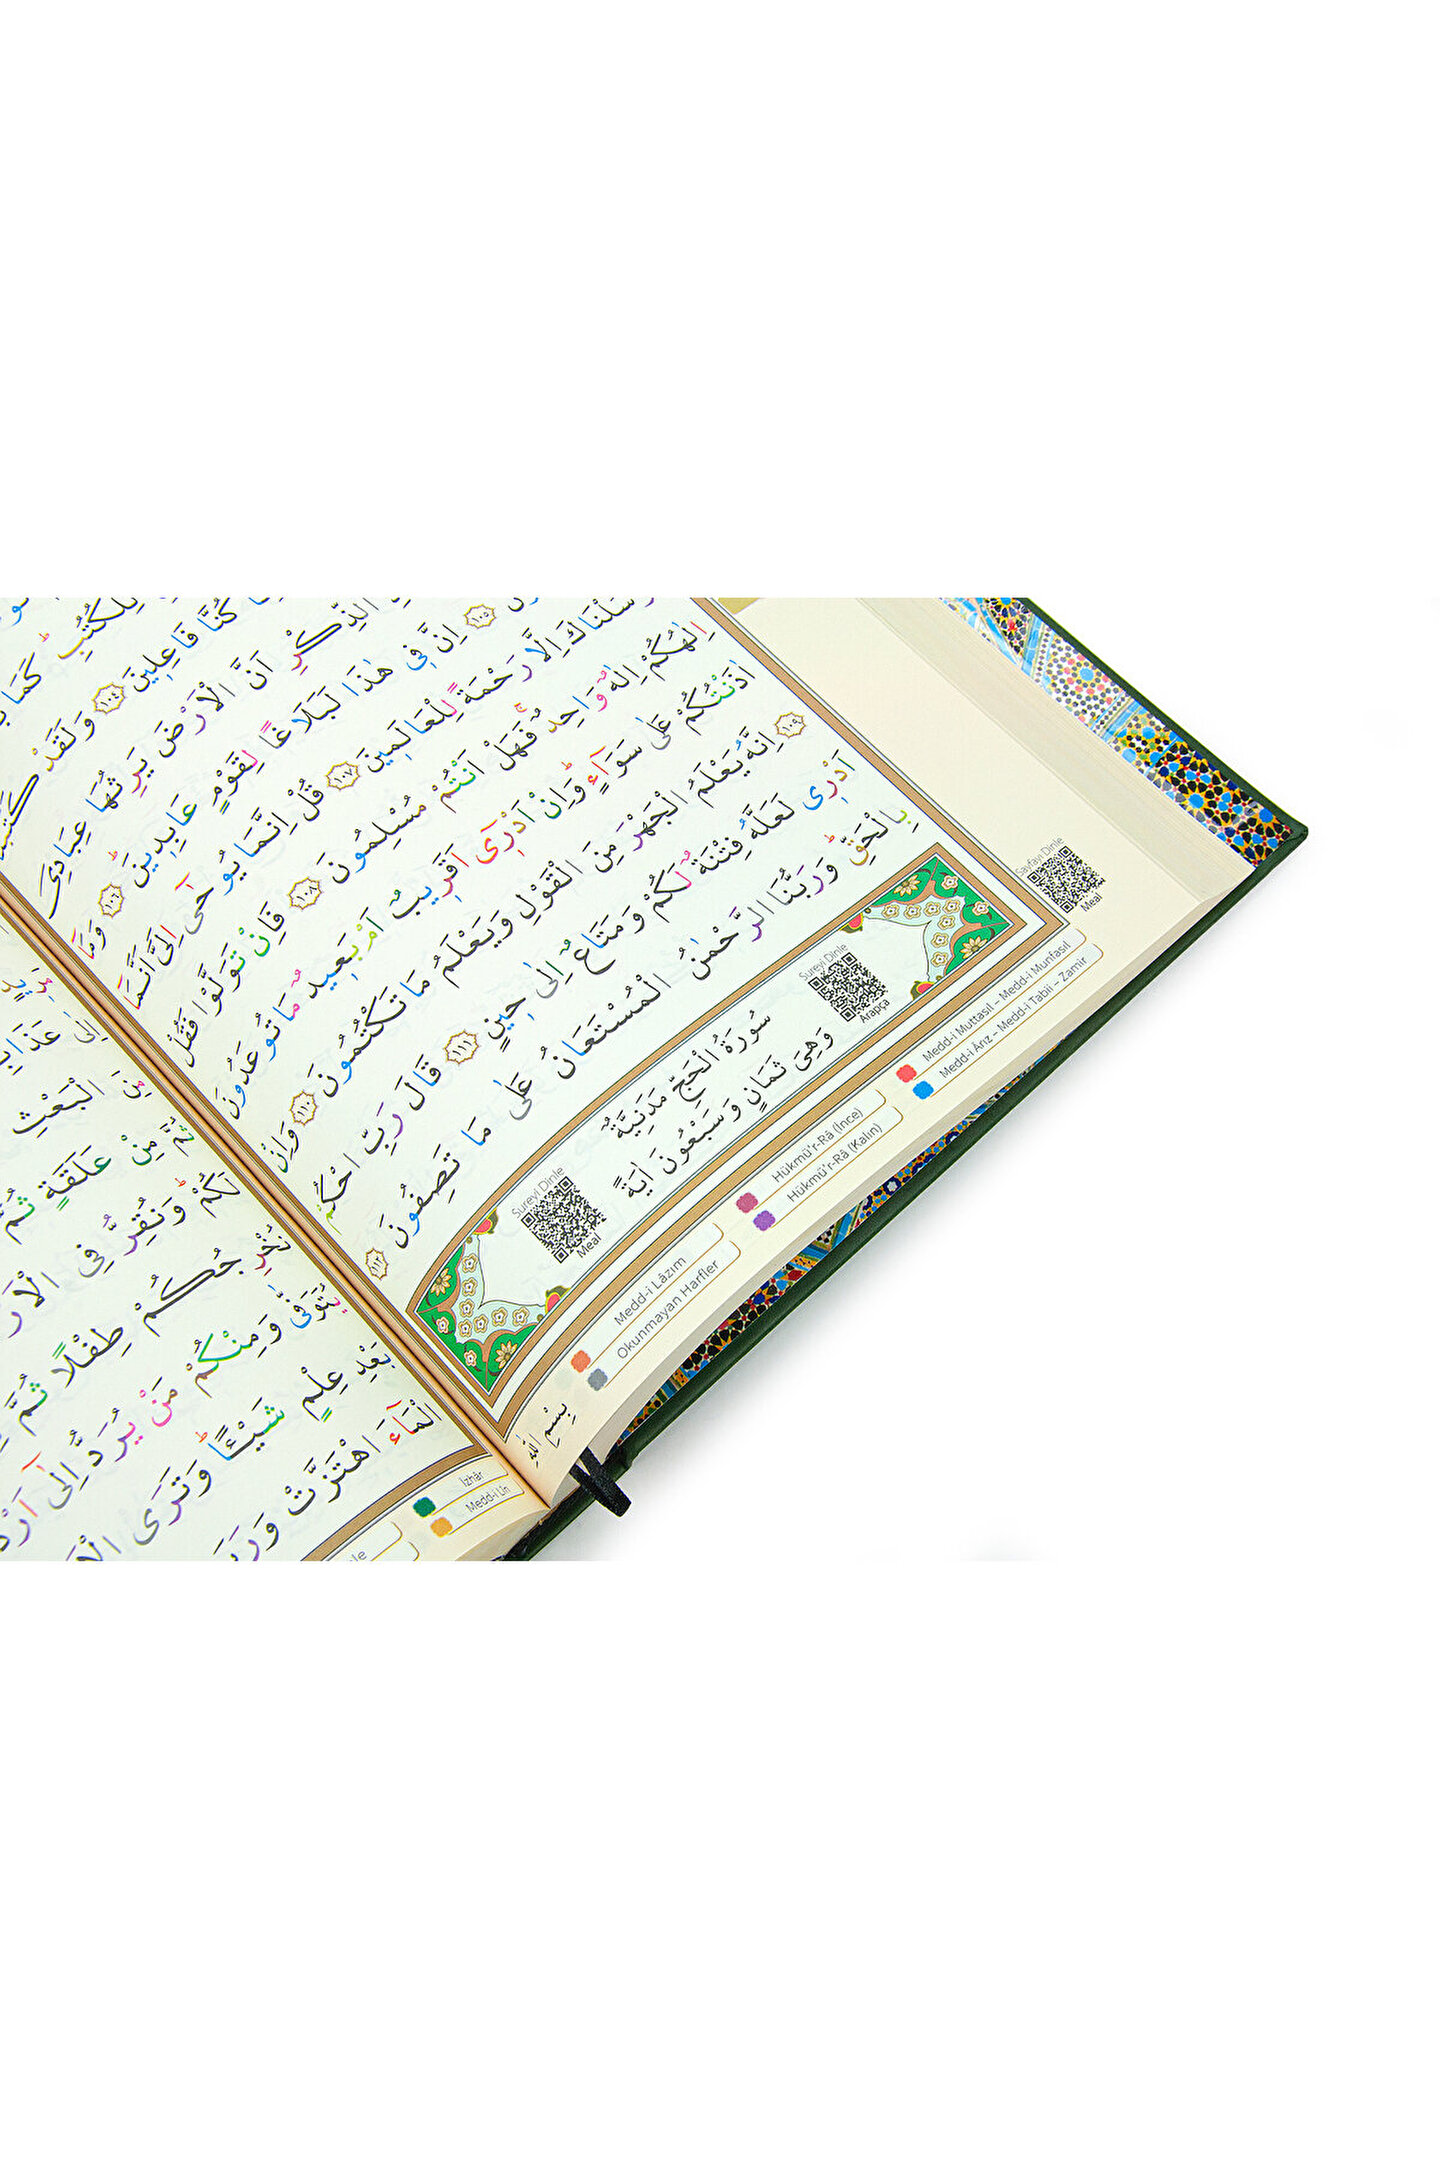 لِلْكُتُبِ كَمَا
كُنَّا فَاعِلِينَ ﴿١٠٤﴾ وَلَقَدْ
الذِّكْرِ اَنَّ الْاَرْضَ يَرِثُهَا عِبَادِيَ
﴿١٠٥﴾ اِنَّ فِى هٰذَا لَبَلَاغًا لِقَوْمٍ عَابِدِينَ ﴿١٠٦﴾ وَمَا
اِلَّا رَحْمَةً لِلْعَالَمِينَ ﴿١٠٧﴾ قُلْ اِنَّمَا يُوحٰٓى اِلَىَّ اَنَّمَا
اِلٰهُكُمْ اِلٰهٌ وَاحِدٌ فَهَلْ اَنْتُمْ مُسْلِمُونَ ﴿١٠٨﴾ فَاِنْ تَوَلَّوْا فَقُلْ
اٰذَنْتُكُمْ عَلٰى سَوَٓاءٍ وَاِنْ اَدْرٖٓى اَقَرٖيبٌ اَمْ بَعٖيدٌ مَا تُوعَدُونَ
﴿١٠٩﴾ اِنَّهُ يَعْلَمُ الْجَهْرَ مِنَ الْقَوْلِ وَيَعْلَمُ مَا تَكْتُمُونَ ﴿١١٠﴾ وَاِنْ
اَدْرٖى لَعَلَّهُ فِتْنَةٌ لَكُمْ وَمَتَاعٌ اِلٰى حٖينٍ ﴿١١١﴾ قَالَ رَبِّ احْكُمْ
بِالْحَقِّ وَرَبُّنَا الرَّحْمٰنُ الْمُسْتَعَانُ عَلٰى مَا تَصِفُونَ ﴿١١٢﴾
سُورَةُ الْحَجِّ مَدَنِيَّةٌ
وَهِىَ ثَمَانٍ وَسَبْعُونَ اٰيَةً
Sureyi Dinle
Arapça
Sureyi Dinle
Meal
Sayfayı Dinle
Meal
Medd-i Muttasıl – Medd-i Munfasıl
Medd-i Arız – Medd-i Tabii – Zamir
Hükmü'r-Râ (İnce)
Hükmü'r-Râ (Kalın)
Medd-i Lâzım
Okunmayan Harfler
بِسْمِ اللّٰهِ
مِنَ الْبَعْثِ
ثُمَّ مِنْ عَلَقَةٍ
لَكُمْ وَنُقِرُّ فِى
نُخْرِجُكُمْ طِفْلًا ثُمَّ
يُتَوَفّٰى وَمِنْكُمْ مَنْ يُرَدُّ اِلٰٓى
بَعْدِ عِلْمٍ شَيْـًٔا وَتَرَى
الْمَٓاءَ اهْتَزَّتْ
İzhâr
Medd-i Lîn